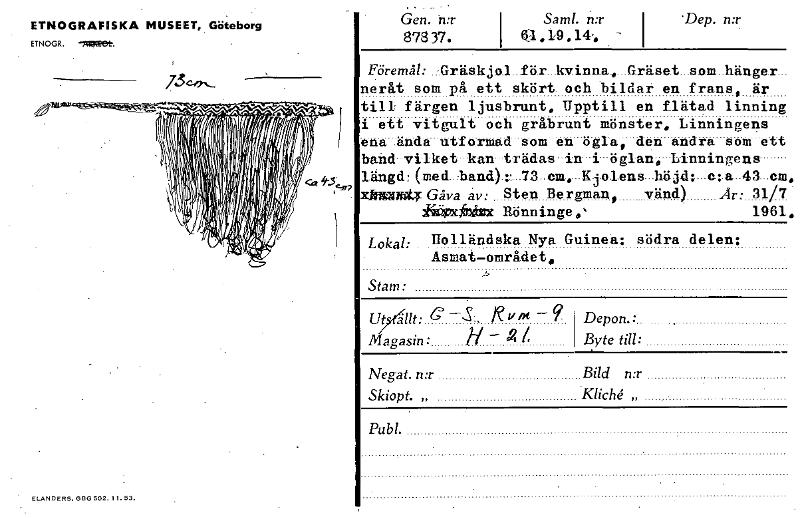 ETNOGRAFISKA MUSEET, Göteborg
ETNOGR. ARKEOL.
73cm
ca 43 cm
ELANDERS, GBG 502. 11. 53.
Gen. n:r Saml. n:r Dep. n:r
87837. 61.19.14.
Föremål: Gräskjol för kvinna. Gräset som hänger
neråt som på ett skört och bildar en frans, är
till färgen ljusbrunt. Upptill en flätad linning
i ett vitgult och gråbrunt mönster. Linningens
ena ända utformad som en ögla, den andra som ett
band vilket kan trädas in i öglan. Linningens
längd (med band): 73 cm. Kjolens höjd: c:a 43 cm.
Gåva av: Sten Bergman, vänd) År: 31/7
Rönninge. 1961.
Lokal: Holländska Nya Guinea: södra delen:
Asmat-området.
Stam:
Utställt: G-S. Rum-9 Depon.:
Magasin: H-21. Byte till:
Negat. n:r Bild n:r
Skiopt. „ Kliché „
Publ.